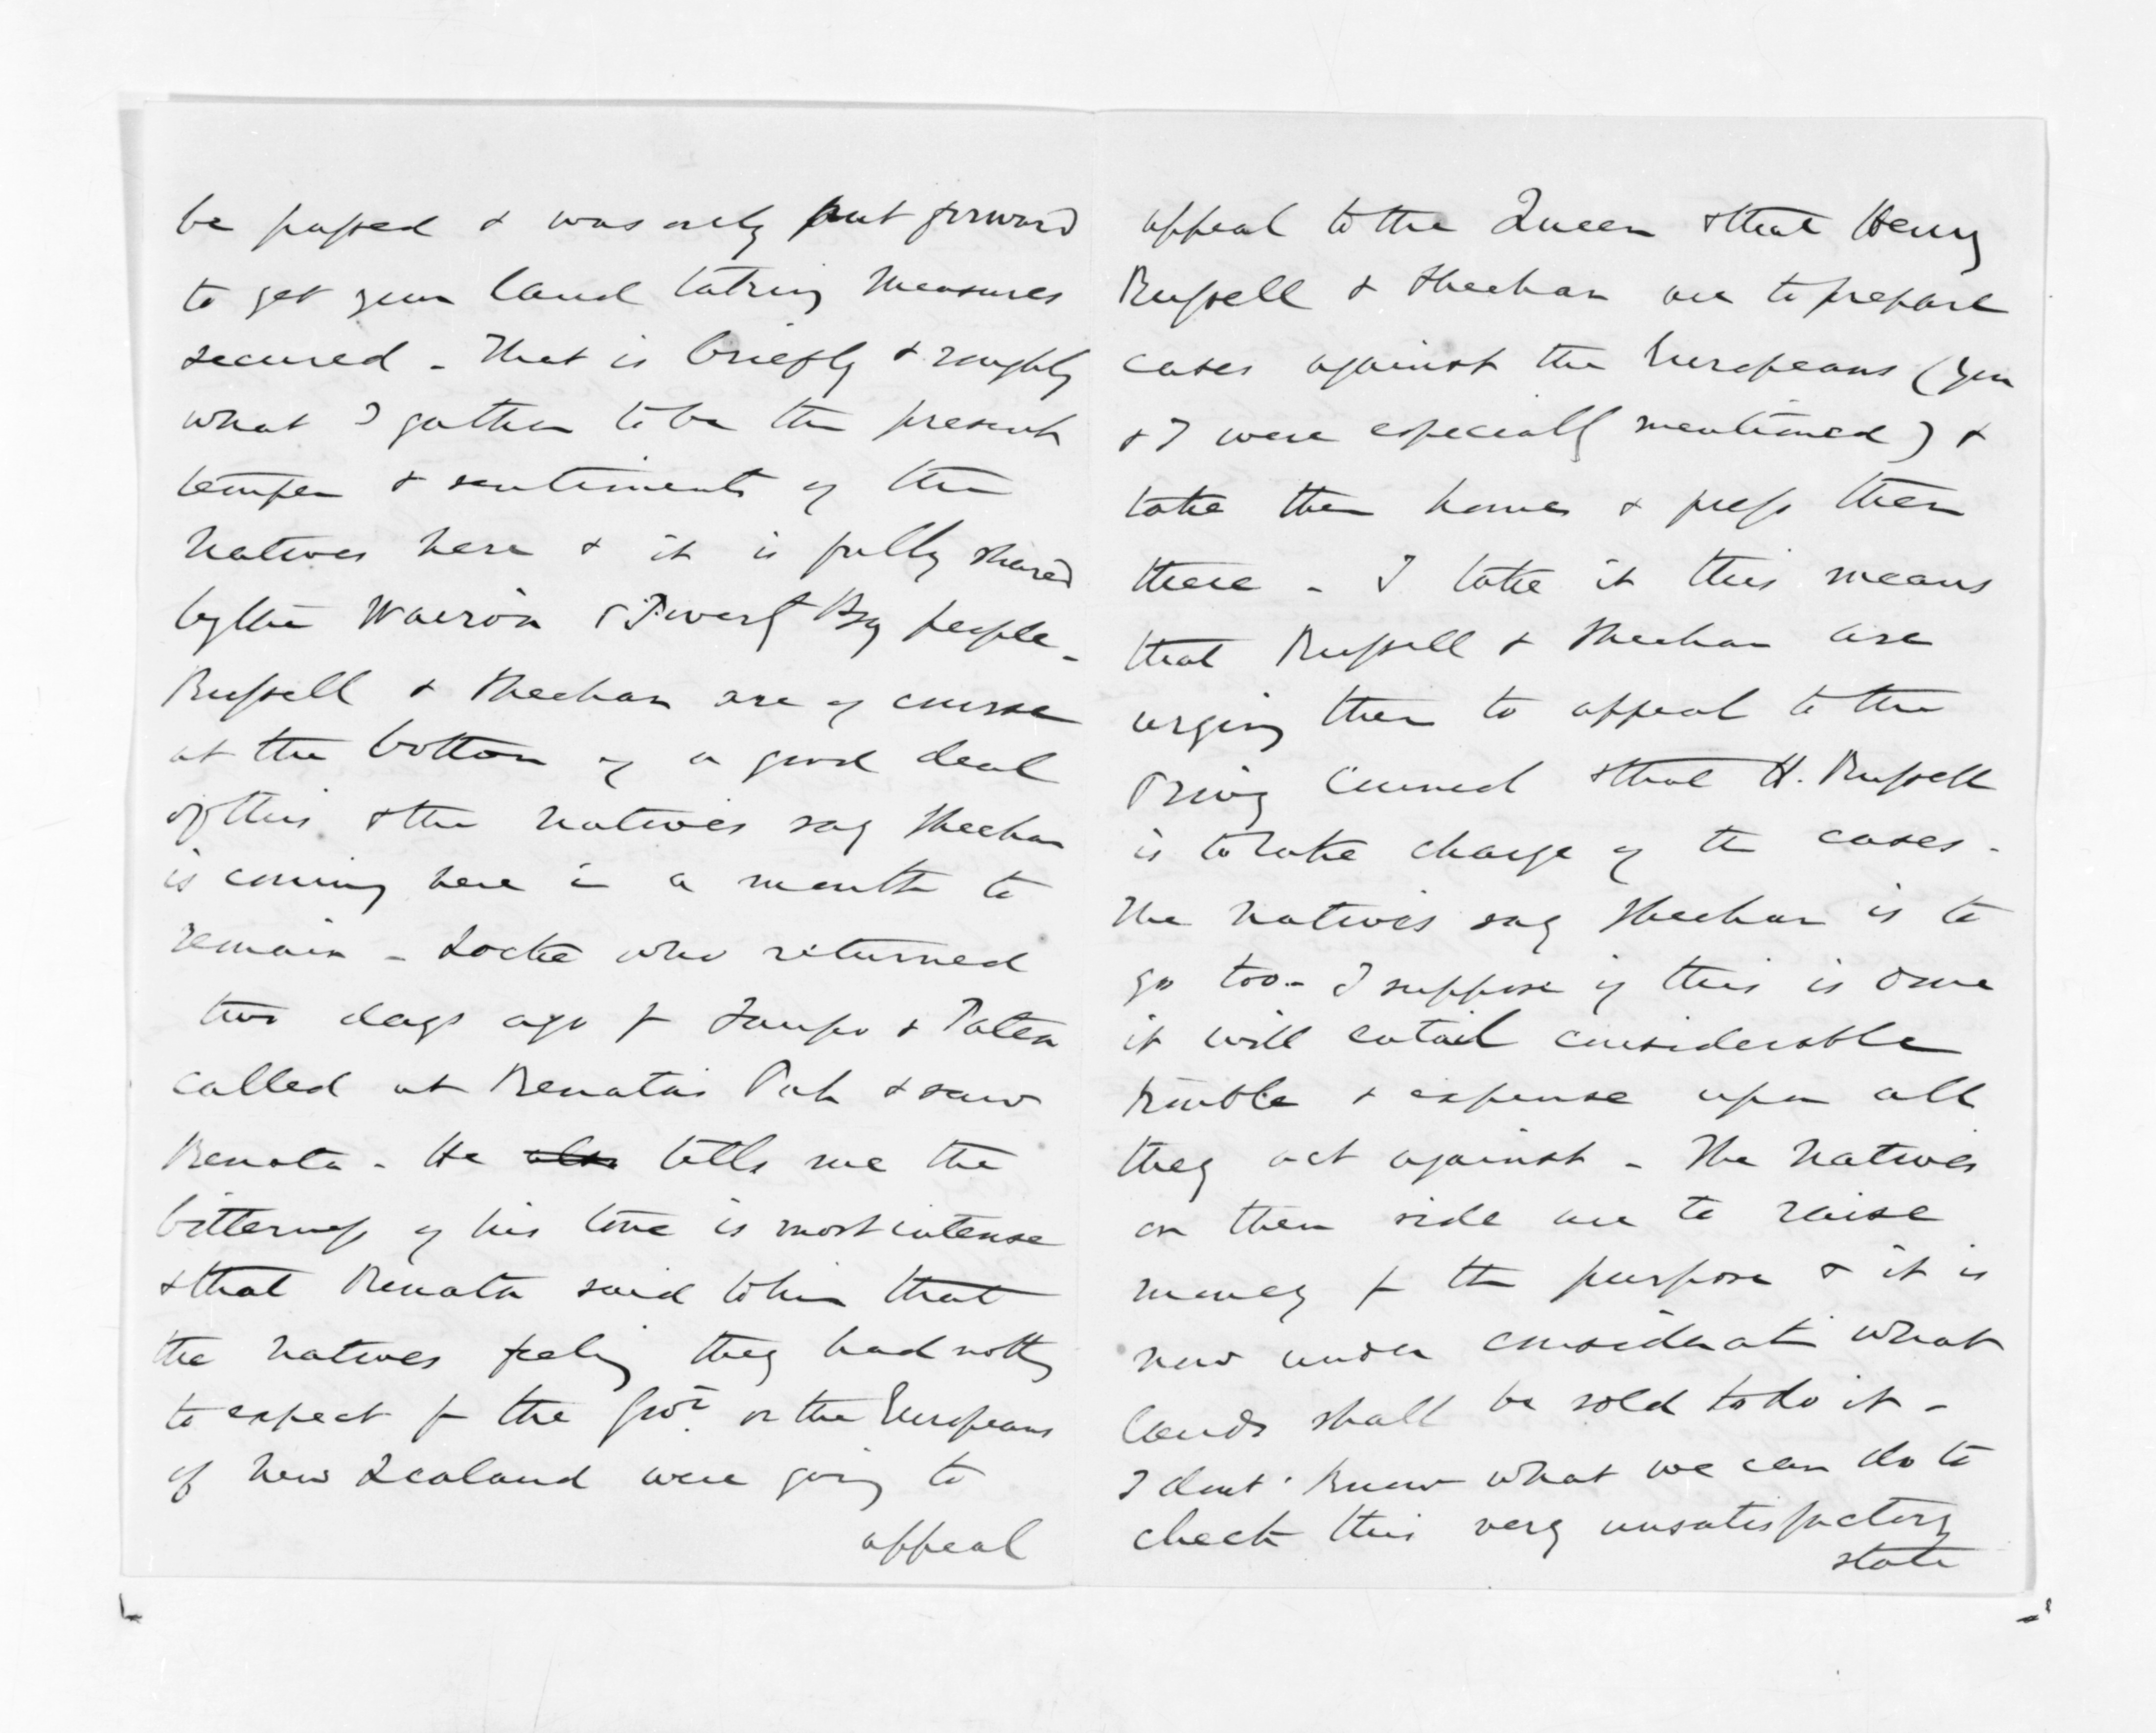 be passed & was only put forward
to get your land taking measures
secured - That is briefly & roughly
what I gather to be the present
temper & sentiments of the
Natives here & it is fully shared
by the Wairoa & Poverty Bay people -
Russell & Sheehan are of course
at the bottom of a good deal
of this & the natives say Sheehan
is coming here in a month to
remain - Locke who returned
two days ago f Taupo & Patea
called at Renata's Pah & saw
Renata - He also tells me the
bitterness of his tone is most intense
& that Renata said to him that
the natives feeling they had nothg
to expect f the Govt. or the Europeans
of New Zealand were going to
appeal
appeal to the Queen & that Henry
Russell & Sheehan are to prepare
cases against the Europeans (you
& I were especially mentioned) &
take them home & press them
there - I take it this means
that Russell & Sheehan are
urging them to appeal to the
Privy Council & that H. Russell
is to take charge of the cases -
The natives say Sheehan is to
go too - I suppose if this is done
it will entail considerable
trouble & expense upon all
they act against - The Natives
on their side are to raise
money f the purpose & it is
now under considerati what
lands shall be sold to do it -
I dont know what we can do to
check this very unsatisfactory
state